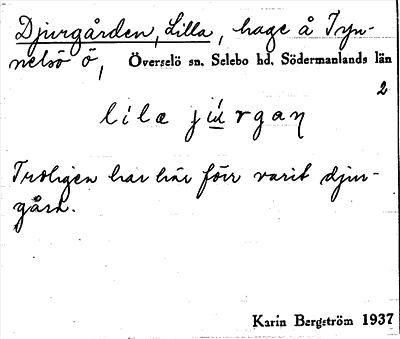 Djurgården, Lilla, hage å Tyn-
nelsö ö, Överselö sn. Selebo hd. Södermanlands län
2
lila júrgan
Troligen har här förr varit djur-
gård.
Karin Bergström 1937